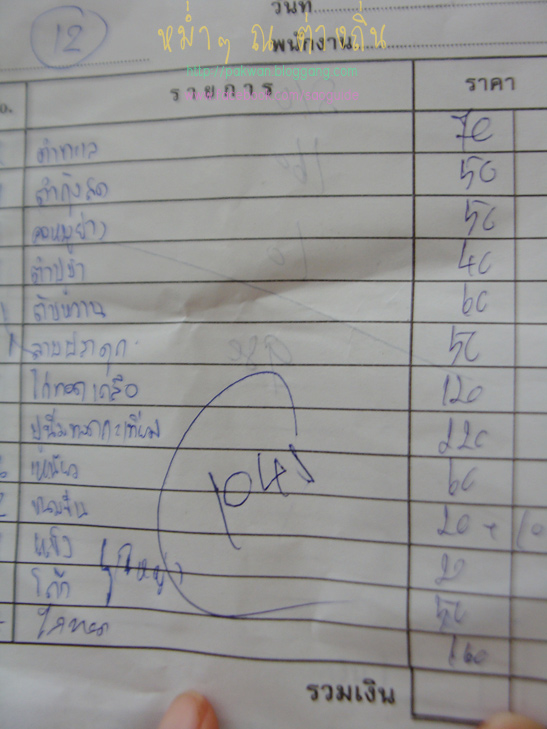 วันที่
12
หม่ำๆ ณ ต่างถิ่น
พนักงาน
http://pakwan.bloggang.com
รายการ ราคา
ตำทะเล 70
ตำกุ้งสด 50
คอหมูย่าง 50
ตำปูม้า 40
60
ลาบปลาดุก 50
ไก่ทอดเกลือ 120
ปูนิ่มทอดกระเทียม 220
ข้าวเหนียว 60
ขนมจีน 20 + 10
แข็ง 20
โค้ก 50
ไก่ทอด 160
1045
รวมเงิน